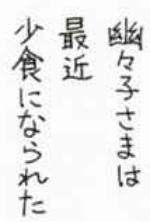 幽々子さまは
最近
少食になられた